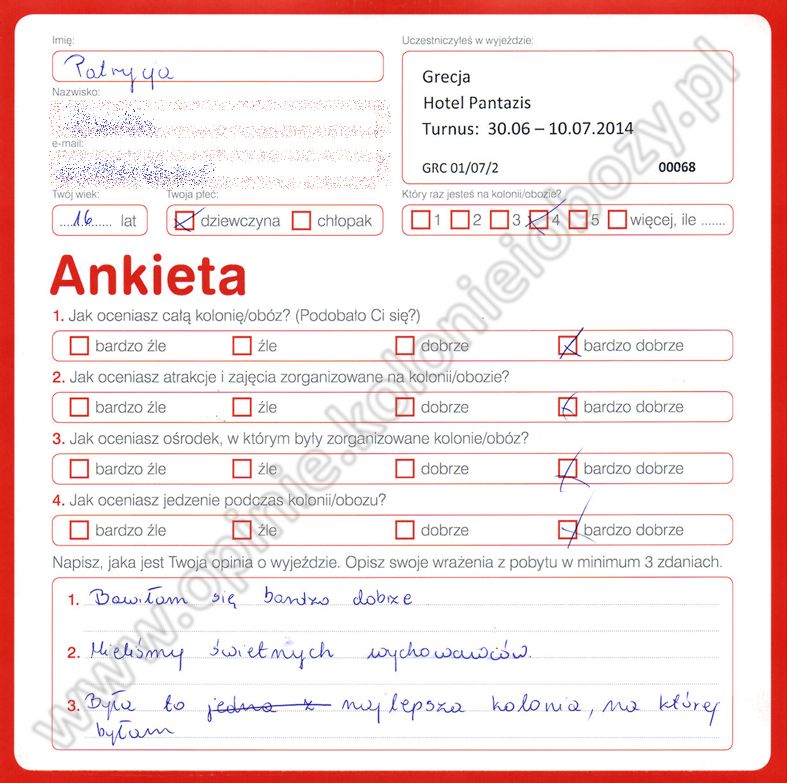 Imię:
Patrycja
Uczestniczyłeś w wyjeździe:
Grecja
Hotel Pantazis
Turnus: 30.06 – 10.07.2014
GRC 01/07/2 00068
Nazwisko:
e-mail:
Twój wiek:
....16...... lat
Twoja płeć:
dziewczyna chłopak
Który raz jesteś na kolonii/obozie?
1 2 3 4 5 więcej, ile .......
Ankieta
1. Jak oceniasz całą kolonię/obóz? (Podobało Ci się?)
bardzo źle źle dobrze bardzo dobrze
2. Jak oceniasz atrakcje i zajęcia zorganizowane na kolonii/obozie?
bardzo źle źle dobrze bardzo dobrze
3. Jak oceniasz ośrodek, w którym były zorganizowane kolonie/obóz?
bardzo źle źle dobrze bardzo dobrze
4. Jak oceniasz jedzenie podczas kolonii/obozu?
bardzo źle źle dobrze bardzo dobrze
Napisz, jaka jest Twoja opinia o wyjeździe. Opisz swoje wrażenia z pobytu w minimum 3 zdaniach.
1. Bawiłam się bardzo dobrze
2. Mieliśmy świetnych wychowawców.
3. Była to jedna z najlepsza kolonia, na której
byłam
www.opinie.kolonieiobozy.pl